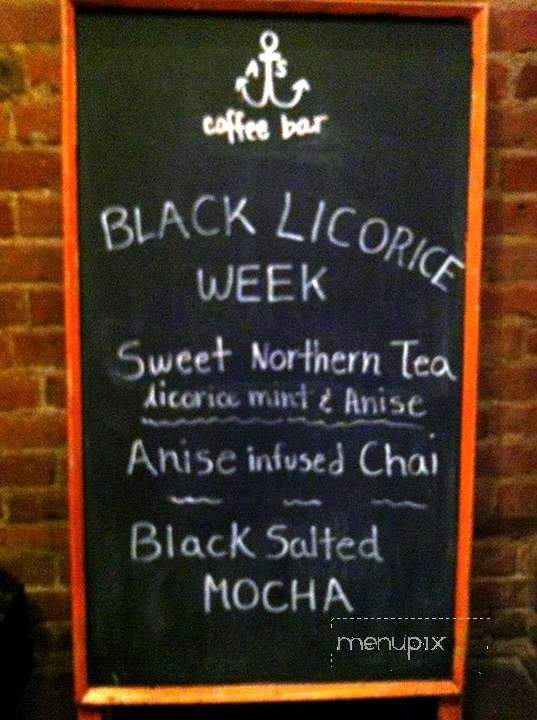 A S
coffee bar
BLACK LICORICE
WEEK
Sweet Northern Tea
licorice mint & Anise
Anise infused Chai
Black Salted
MOCHA
menupix